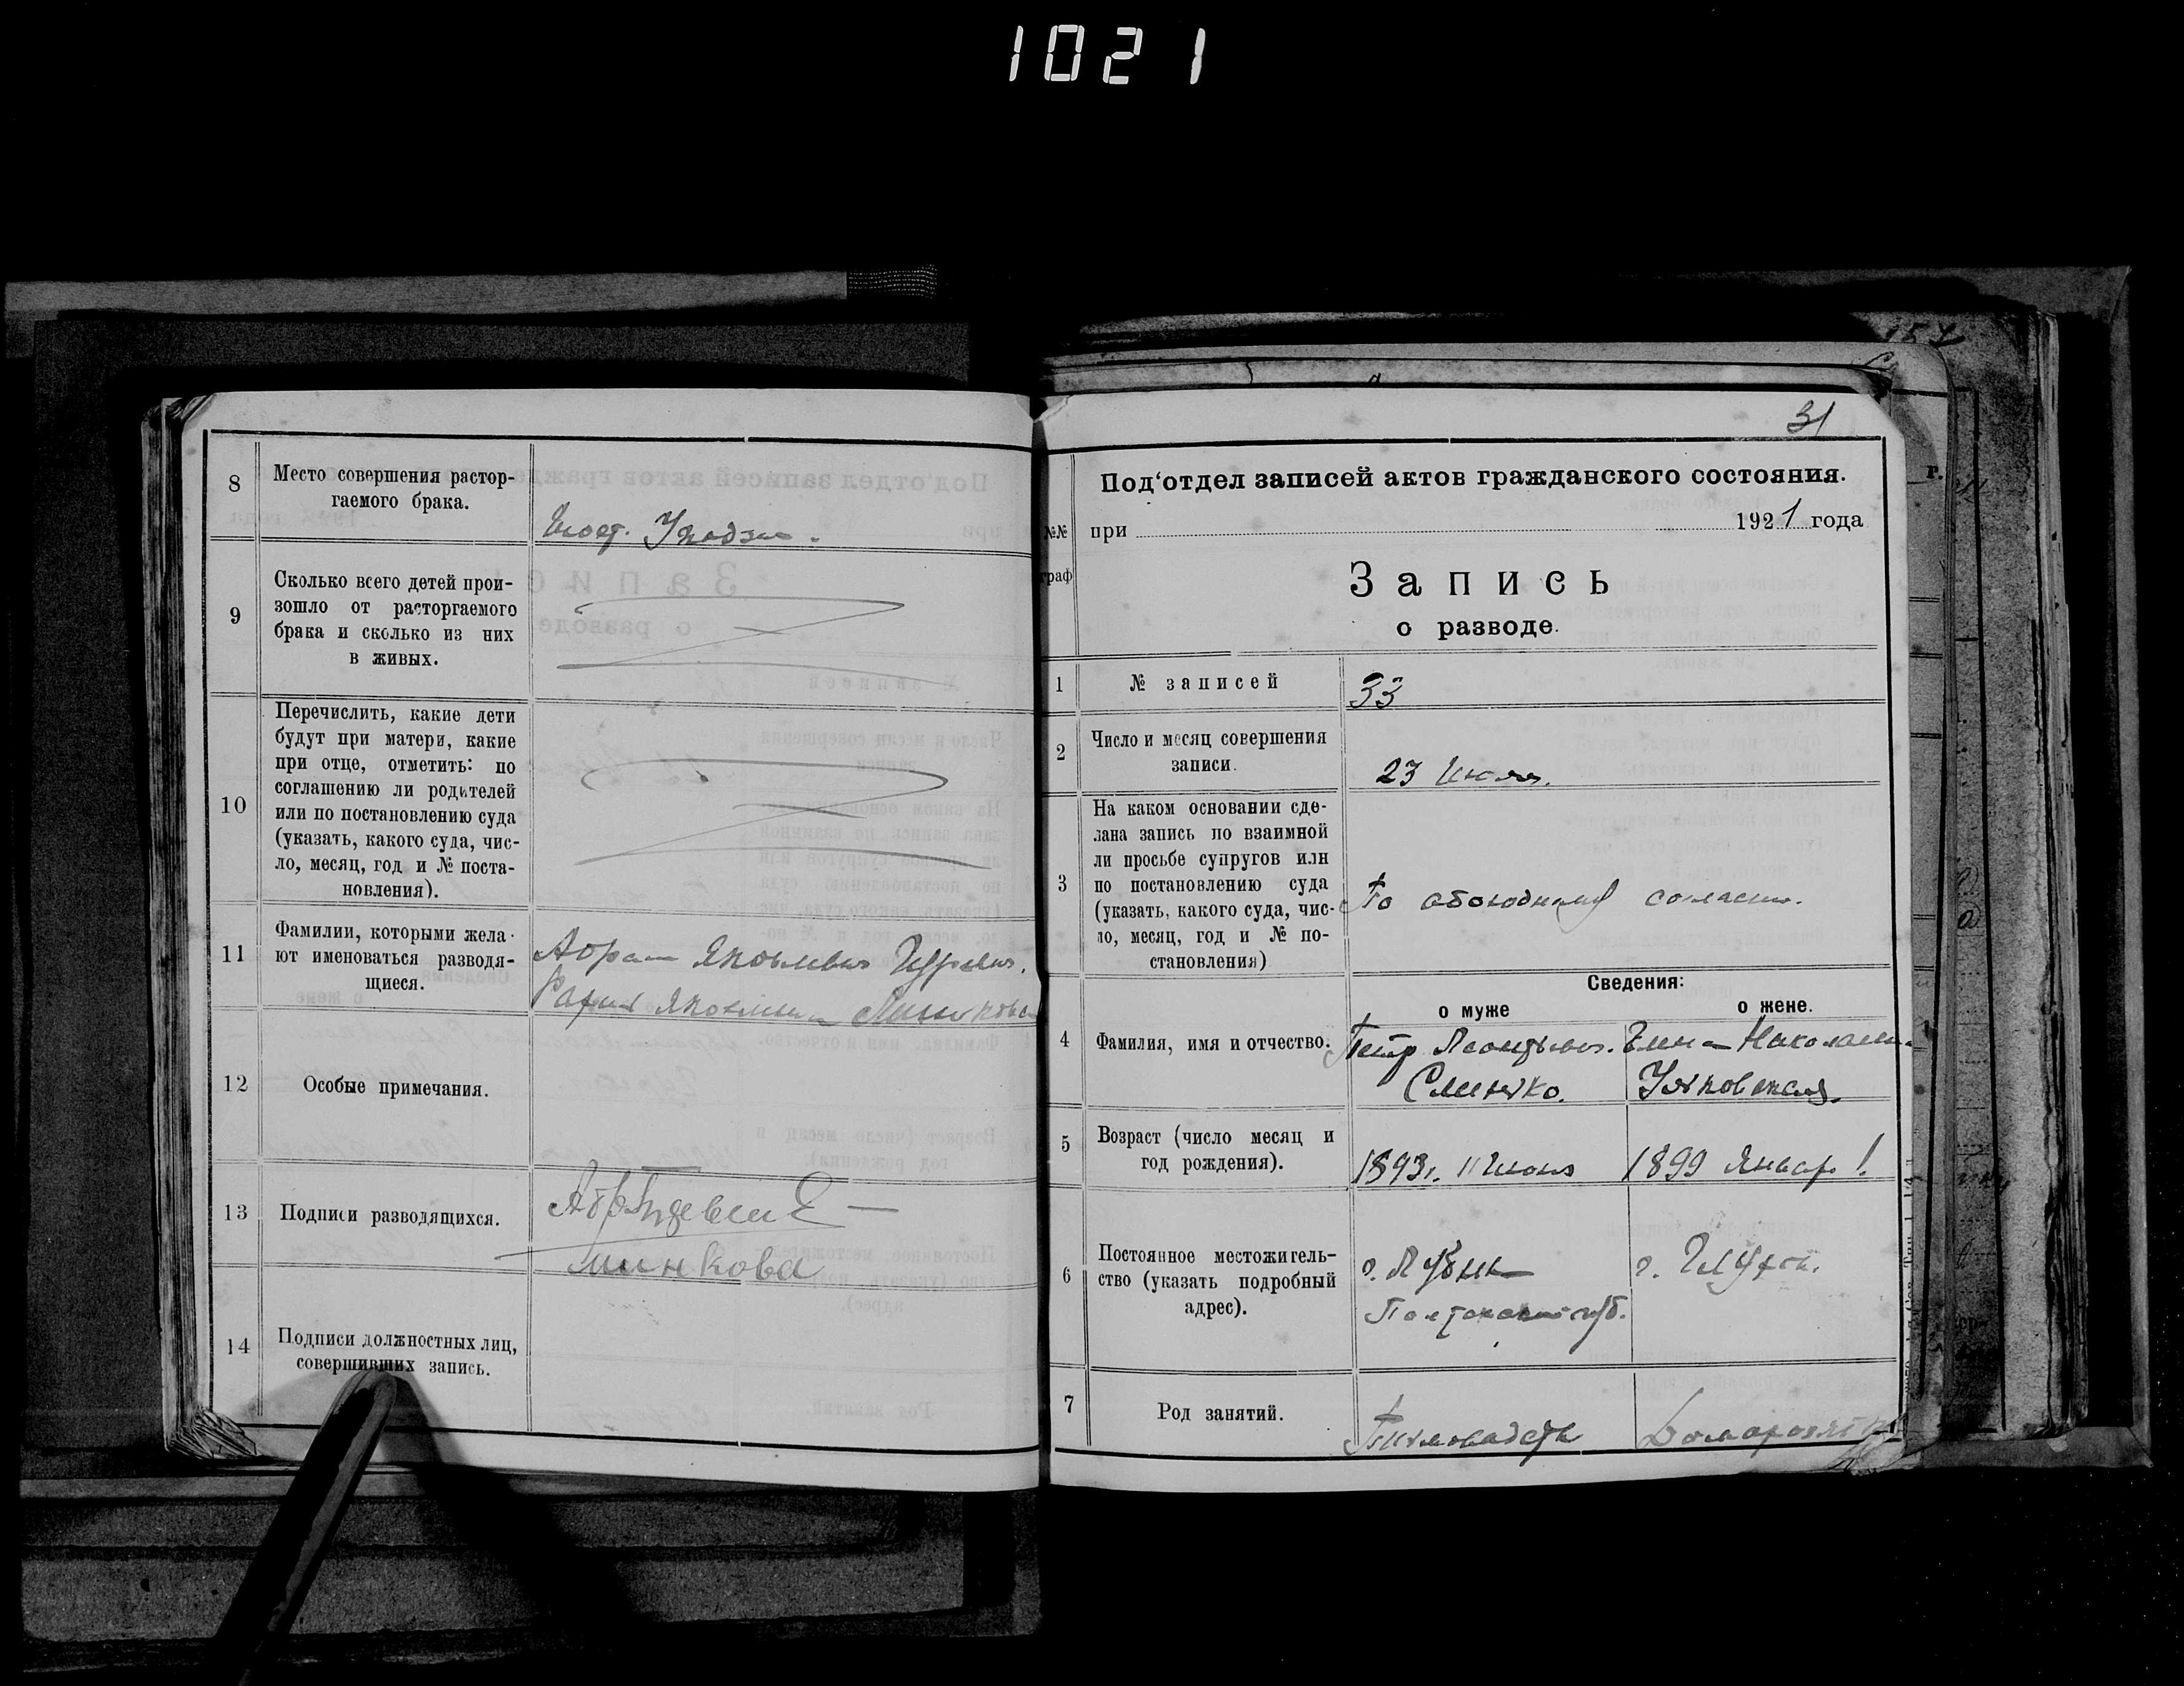 1021
8
Место совершения растор-
гаемого брака.
9
Сколько всего детей прои-
зошло от расторгаемого
брака и сколько из них
в живых.
10
Перечислить, какие дети
будут при матери, какие
при отце, отметить: по
соглашению ли родителей
или по постановлению суда
(указать, какого суда, чис-
ло, месяц, год и № поста-
новления).
11
Фамилии, которыми жела-
ют именоваться разводя-
щиеся.
Яковлевич
12
Особые примечания.
13
Подписи разводящихся.
Минкова
14
Подписи должностных лиц,
совершивших запись.
31
№№
граф
Под‘отдел записей актов гражданского состояния.
при 1921 года
Запись
о разводе.
1
№ записей
33
2
Число и месяц совершения
записи.
23 Июля.
3
На каком основании сде-
лана запись по взаимной
ли просьбе супругов или
по постановлению суда
(указать, какого суда, чис-
ло, месяц, год и № по-
становления)
По обоюдному согласию.
Сведения:
о муже о жене.
4
Фамилия, имя и отчество.
Петр Леонтьевич. Елена Николаевна
5
Возраст (число месяц и
год рождения).
1893г. 11 Июня 1899 Январ. 1.
6
Постоянное местожитель-
ство (указать подробный
адрес).
г. Лубны
Полтавской губ.
7
Род занятий.